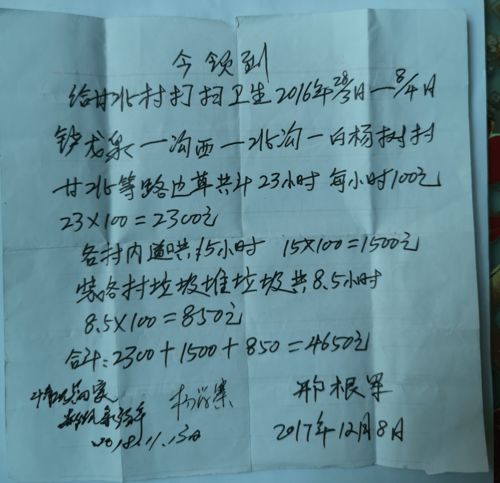 今领到
给甘北村打扫卫生2016年28/3日—8/4日
铲龙泉一沟西一北沟一白杨树村
甘北等路边草共计23小时 每小时100元
23×100=2300元
各村内道共15小时 15×100=1500元
装各村垃圾堆垃圾共8.5小时
8.5×100=850元
合计:2300+1500+850=4650元
邢根军
2017年12月8日
2018.11.13日